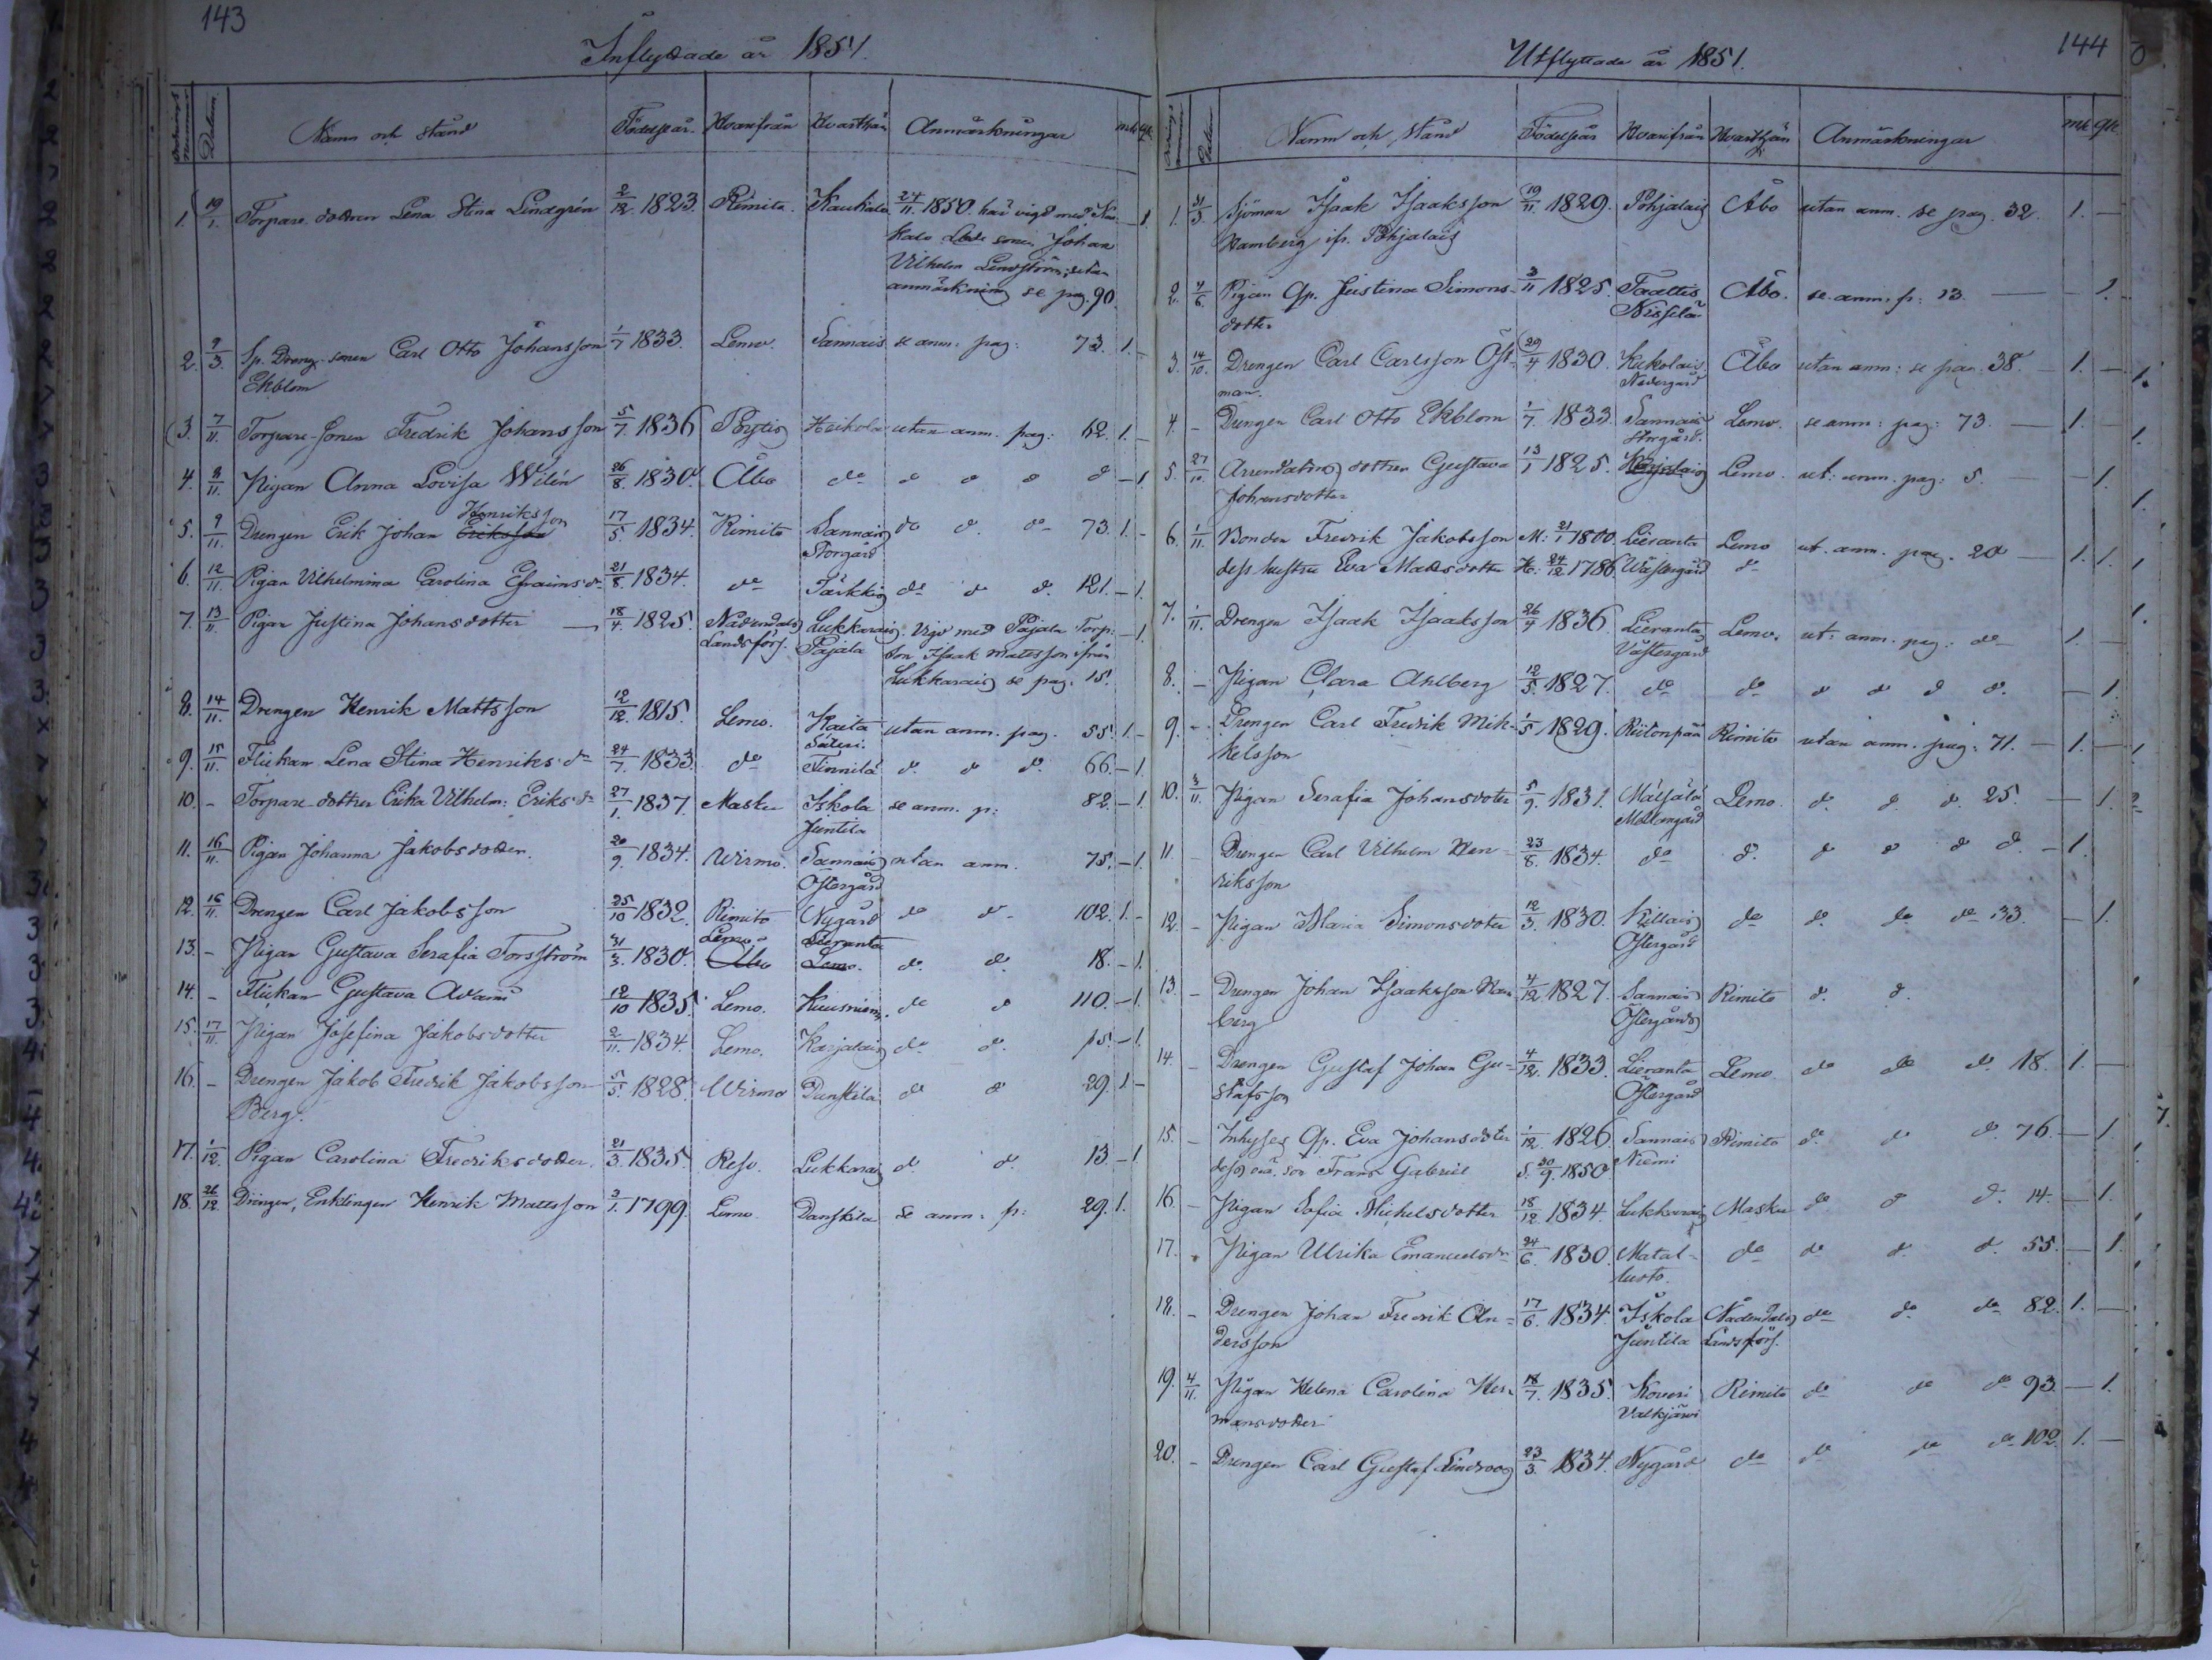 143
Inflyttade år 1851.
Ordnings Nummer Datum Namn och stånd Födelseår Hvarifrån Hvarthän Anmärkningar mk qk
1. 19/1. Torpare dottren Lena Stina Lindgrén 2/12. 1823. Rimito. Kaukala 24/11. 1850. har vigd med Kau- 1
kala sonen Johan
Vilhelm Lindström, utan
anmärkning se pag. 90.
2. 9/3. Sp. Dreng-sonen Carl Otto Johansson 1/7 1833. Lemo. Sannais se anm: pag: 73. 1. -
Ekblom
3. 7/11. Torpare-Sonen Fredrik Johansson 5/7. 1836 Pöytis Heikola utan anm. pag: 62. 1. -
4. 8/11. Pigan Anna Lovisa Wilén 26/8. 1830. Åbo do d d d d - 1.
Henriksson
5. 9/11. Drengen Erik Johan Eriksson 17/5. 1834. Rimito Sannais do d. do 73. 1. -
Storgård
6. 12/11. Pigan Vilhelmina Carolina Efraimsdr 21/8. 1834. do Tärkkis do d d. 121. - 1.
7. 13/11. Pigan Justina Johansdotter 18/4. 1825. Nådendals Lukkarais. Vigd med Pajala Torp: - 1.
Landsförs. Pajala son Isaak Mattsson från
Lukkarais se pag. 15.
8. 14/11. Drengen Henrik Mattsson 12/12. 1815. Lemo. Kaita utan anm. pag. 55. 1. -
Säteri.
9. 15/11. Flickan Lena Stina Henriksdr 24/7. 1833. do Finnilä d. d d. 66. - 1.
10. - Torpare-dottren Erika Vilhelm: Eriksdr 27/1. 1837. Masku Iskola se anm. p: 82. - 1.
Juntila
11. 16/11. Pigan Johanna Jakobsdotter. 20/9. 1834. Wirmo. Sannais utan anm. 75. - 1.
Östergård
12. 16/11. Drengen Carl Jakobsson 25/10 1832. Rimito Nygård do d. 102. 1. -
Lemo. Lieranta
13. - Pigan Gustava Serafia Torsström 31/3. 1830. Åbo Lemo. d. d. 18. - 1.
14. - Flickan Gustava Adami 12/10 1835. Lemo. Kuusniemi. do d 110. - 1.
15. 17/11. Pigan Josefina Jakobsdotter 2/11. 1834. Lemo. Karjalais do d. 15. - 1.
16. - Drengen Jakob Fredrik Jakobsson 5/5. 1828. Wirmo Danskila d d 29. 1. -
Berg.
17. 1/12. Pigan Carolina Fredriksdotter. 21/3. 1835. Reso. Lukkarais d. d. 13. - 1.
18. 26/12. Drengen, Enklingen Henrik Mattsson 3/1. 1799. Lemo. Danskila se anm: p: 29. 1.
144
Utflyttade år 1851.
Ordnings nummer Datum Namn och stånd Födelseår Hvarifrån Hvarthän Anmärkningar mk qk
1. 31/3. Sjöman Isaak Isaaksson 19/11. 1829. Pohjalais Åbo utan anm. se pag. 32. 1. -
Hamberg ifr. Pohjalais
2. 4/6. Pigan Gp. Justina Simons- 3/11 1825. Taattis Åbo. se anm. p: 13. - 1.
dotter Nissilä
3. 14/10. Drengen Carl Carlsson Öst- 29/4 1830. Kakolais Åbo utan anm: se pag. 38. 1. -
man. Nedergård
4. - Drengen Carl Otto Ekblom 1/7. 1833. Sannais Lemo. se anm: pag: 73. 1.
Storgård.
5. 27/10. Arrendators dottren Gustava 13/1 1825. Karjalais Lemo. ut: anm. pag: 5. - 1.
Johansdotter
6. 1/11. Bonden Fredrik Jakobsson M: 21/1 1800. Lieranta Lemo ut. anm. pag. 20 1. 1.
dess hustru Eva Mattsdotter H: 24/12 1786. Wästergård do
7. 1/11. Drengen Isaak Isaaksson 26/4 1836. Lieranta Lemo. ut: anm. pag: do 1. -
Västergård
8. - Pigan Clara Ahlberg 12/5. 1827. do do d d d d. - 1.
9. - Drengen Carl Fredrik Mik- 1/5 1829. Riitonpää Rimito utan anm. pag: 71. 1. -
kelsson
10. 3/11. Pigan Serafia Johansdoter 5/9. 1831. Mälsälä Lemo. d. d. d. 25. - 1.
Mellangård
11. - Drengen Carl Vilhelm Hen- 23/8. 1834. do d. d d d d. - 1.
riksson
12. - Pigan Maria Simonsdoter 12/3. 1830. Killais do d. do do 33. - 1.
Östergård
13. - Drengen Johan Isaaksson Ham 4/12. 1827. Sannais Rimito d. d.
berg Östergårds
14. - Drengen Gustaf Johan Gu- 4/12. 1833. Lieranta Lemo. do do d. 18. 1. -
stafsson Östergård
15. - Inhyses Gp. Eva Johansdoter 1/12. 1826 Sannais Rimito d. d d. 76. - 1.
dess oä. son Frans Gabriel S. 30/9. 1850. Niemi
16. - Pigan Sofia Michelsdotter 18/12. 1834. Lukkarais Masku do d d. 14. - 1.
17. - Pigan Ulrika Emanuelsdr 24/6. 1830. Matal- do do d. d. 55. - 1.
luoto.
18. - Drengen Johan Fredrik An- 17/6. 1834. Iskola Nådendals do do do 82. 1. -
dersson Juntila Landsförs.
19. 4/11. Pigan Helena Carolina Her- 18/7. 1835. Koveri Rimito do do do 93. - 1.
mansdotter Valkjärvi
20. - Drengen Carl Gustaf Lindroos 23/3. 1834. Nygård do do do do 102. 1. -